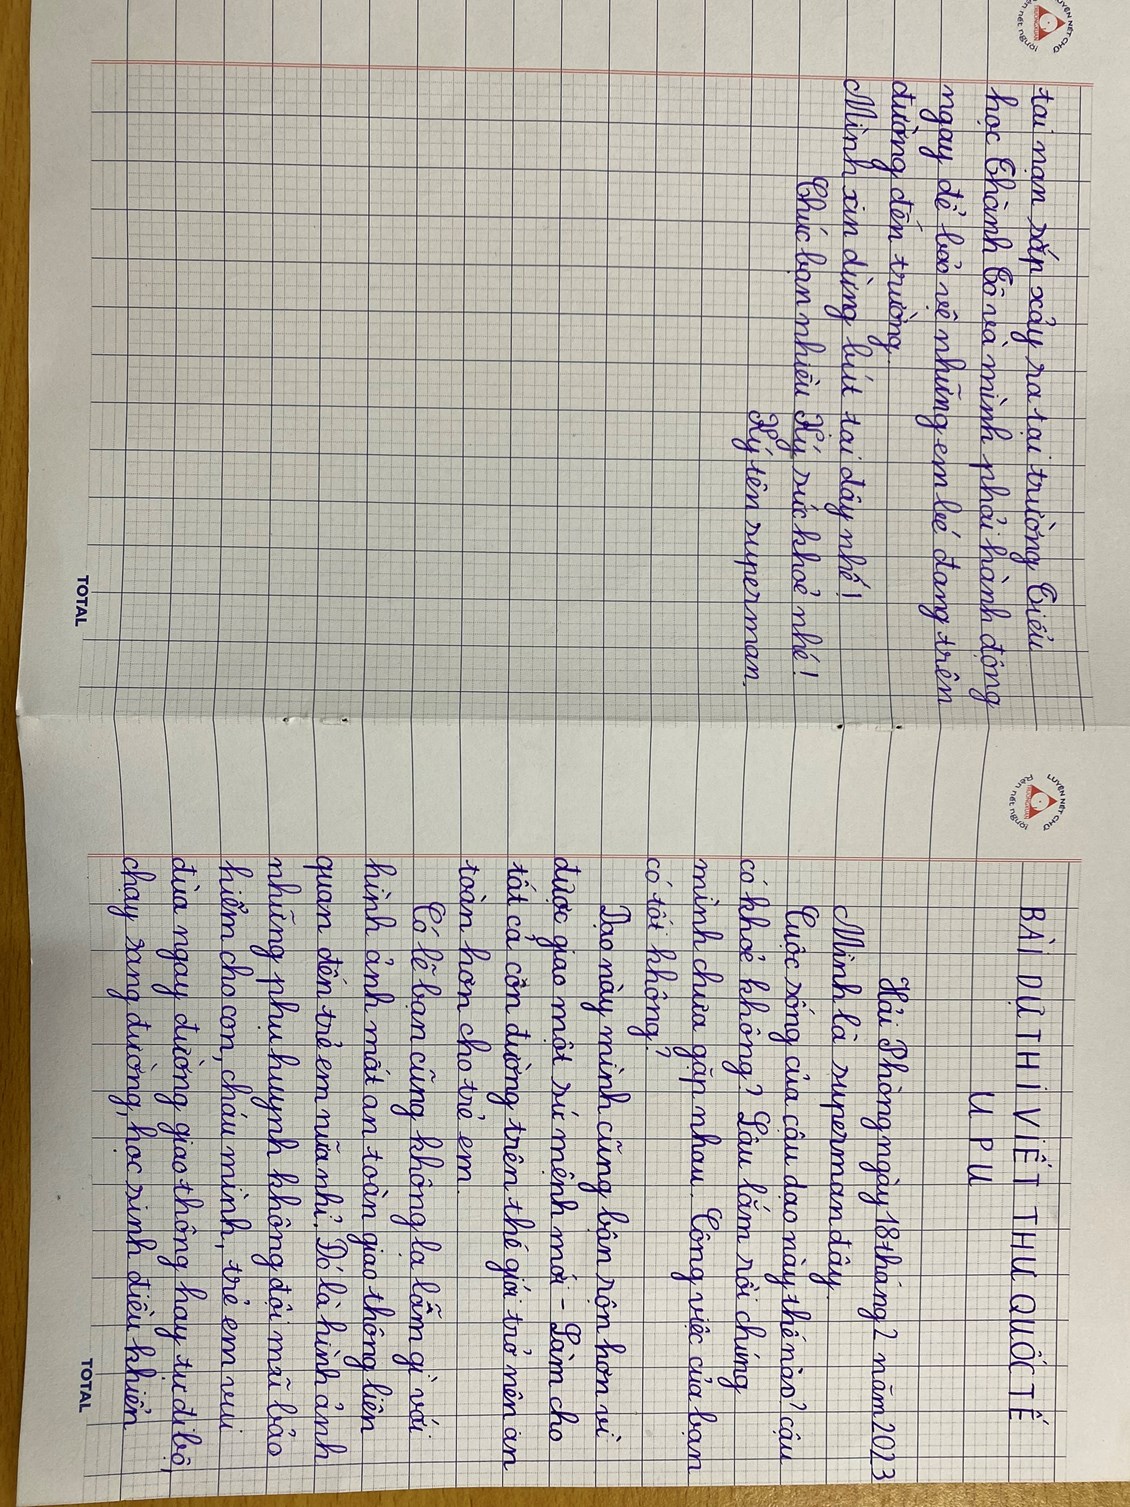 BÀI DỰ THI VIẾT THƯ QUỐC TẾ
U P U
Hải Phòng ngày 18 tháng 2 năm 2023
Mình là superman đây.
Cuộc sống của cậu dạo này thế nào? cậu
có khoẻ không? Lâu lắm rồi chúng
mình chưa gặp nhau. Công việc của bạn
có tốt không?
Dạo này mình cũng bận rộn hơn vì
được giao một sứ mệnh mới - Làm cho
tất cả cồn đường trên thế giới trở nên an
toàn hơn cho trẻ em.
Có lẽ bạn cũng không lạ lẫm gì với
hình ảnh mất an toàn giao thông liên
quan đến trẻ em nữa nhỉ. Đó là hình ảnh
những phụ huynh không đội mũ bảo
hiểm cho con, cháu mình, trẻ em vui
đùa ngay đường giao thông hay tự đi bộ,
chạy sang đường, học sinh điều khiển
TOTAL
LUYỆN NÉT CHỮ
Rèn nết người
tai nạn sắp xảy ra tại trường Tiểu
học Thành Tô và mình phải hành động
ngay để bảo vệ những em bé đang trên
đường đến trường.
Mình xin dừng bút tại đây nhé!
Chúc bạn nhiều Ký sức khoẻ nhé!
Ký tên superman.
TOTAL